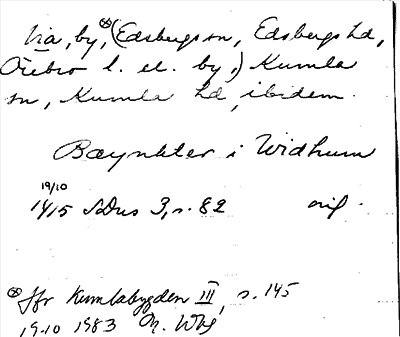 Via, by, ⊗(Edsbergs sn, Edsbergs hd,
Örebro l. el. by,) Kumla
sn, Kumla hd, ibidem.
Bæynkter i Widhum
19/10
1415 SDns 3, s. 82 orig.
⊗ Jfr Kumlabygden III, s. 145
19.10 1983 M. Wbg